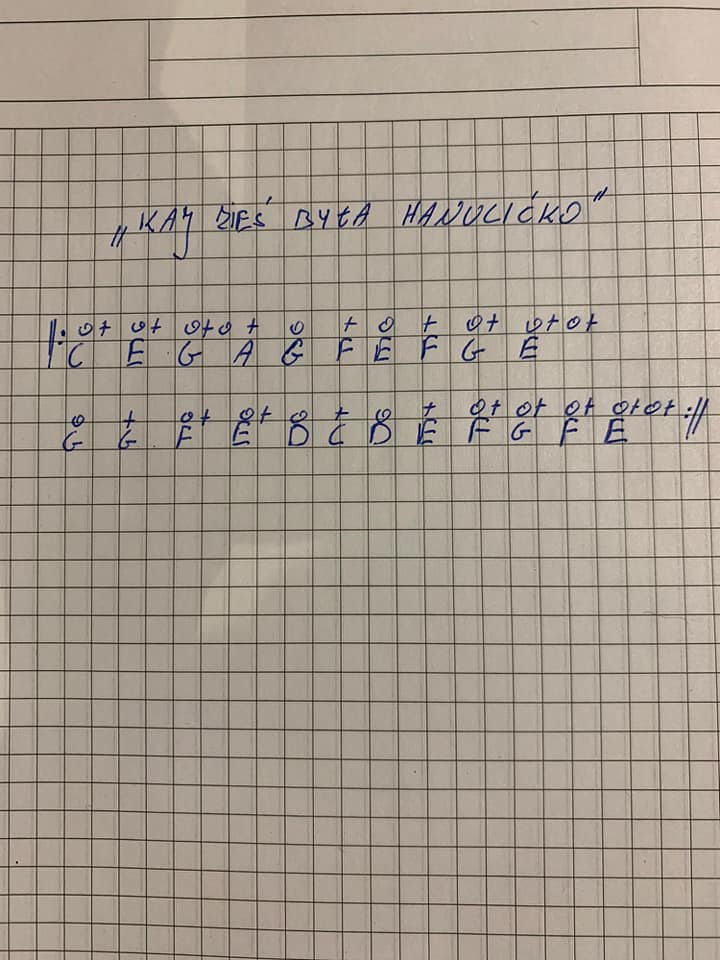 „KAJ ŻIEŚ BYŁA HANULIČKO"
|: o+ o+ o+o + o + o + o+ o+o+
C E G A G F E F G E
o + o+ o+ o + o + o+ o+ o+ o+o+ ://
G G F E D C D E F G F E